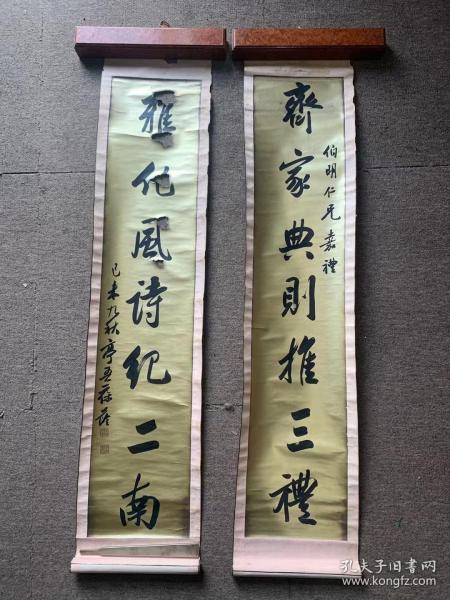 齊家典則推三禮
伯明仁兄嘉禮
雅化風詩紀二南
己未九秋
孔夫子旧书网
www.kongfz.com